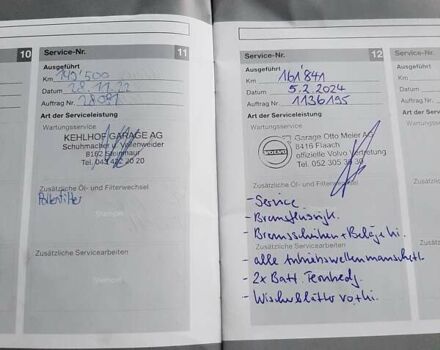 10
Service-Nr. 11
Ausgeführt
Km 149'500
Datum 28.11.22
Auftrag Nr. 28081
Art der Serviceleistung
Wartungsservice
KEHLHOF GARAGE AG
Schuhmacher u. Vollenweider
8162 Steinmaur
Zusätzliche Öl- und Filterwechsel
Pollenfilter
Stempel
Zusätzliche Servicearbeiten
Stempel
Service-Nr. 12
Ausgeführt
Km 161'841
Datum 5.2.2024
Auftrag Nr. 1136195
Art der Serviceleistung
Wartungsservice
Garage Otto Meier AG
8416 Flaach
offizielle Volvo Vertretung
Tel. 052 305 30 30
VOLVO
Zusätzliche Öl- und Filterwechsel
- Service
- Bremsflüssigk.
- Bremsscheiben + Beläge hi.
Zusätzliche Servicearbeiten
- alle Antriebswellenmanschett.
- 2x Batt. Fernbedg.
- Wischblätter vo+hi.